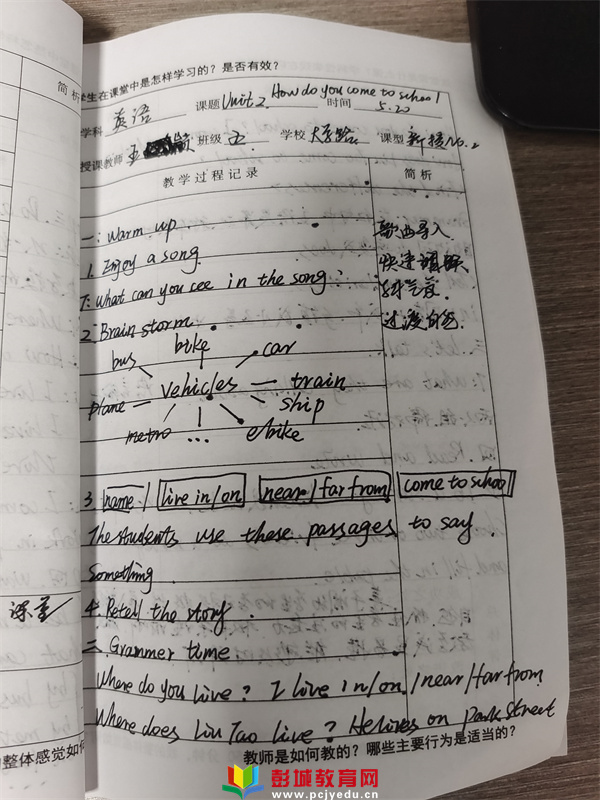 简析
学生在课堂中是怎样学习的？是否有效？
学科 英语 课题 Unit 2 How do you come to school 时间 5.20
授课教师 王 班级 五 学校 大学路 课型 新授 No.2
教学过程记录 简析
一: Warm up.
1. Enjoy a song. 歌曲导入
T: What can you cee in the song: 快速
2. Brain storm. 过渡自然.
bus bike car
plane vehicles train
ship
metro ... e-bike
3. name / live in/on near/far from come to school
The students use these passages to say
Something.
4. Retell the story.
二. Grammer time
Where do you live? I live in/on/near/far from
Where does Liu Tao live? He lives on Park Street
课堂
的整体感觉如何
教师是如何教的？哪些主要行为是适当的？
彭城教育网
www.pcjyedu.cn